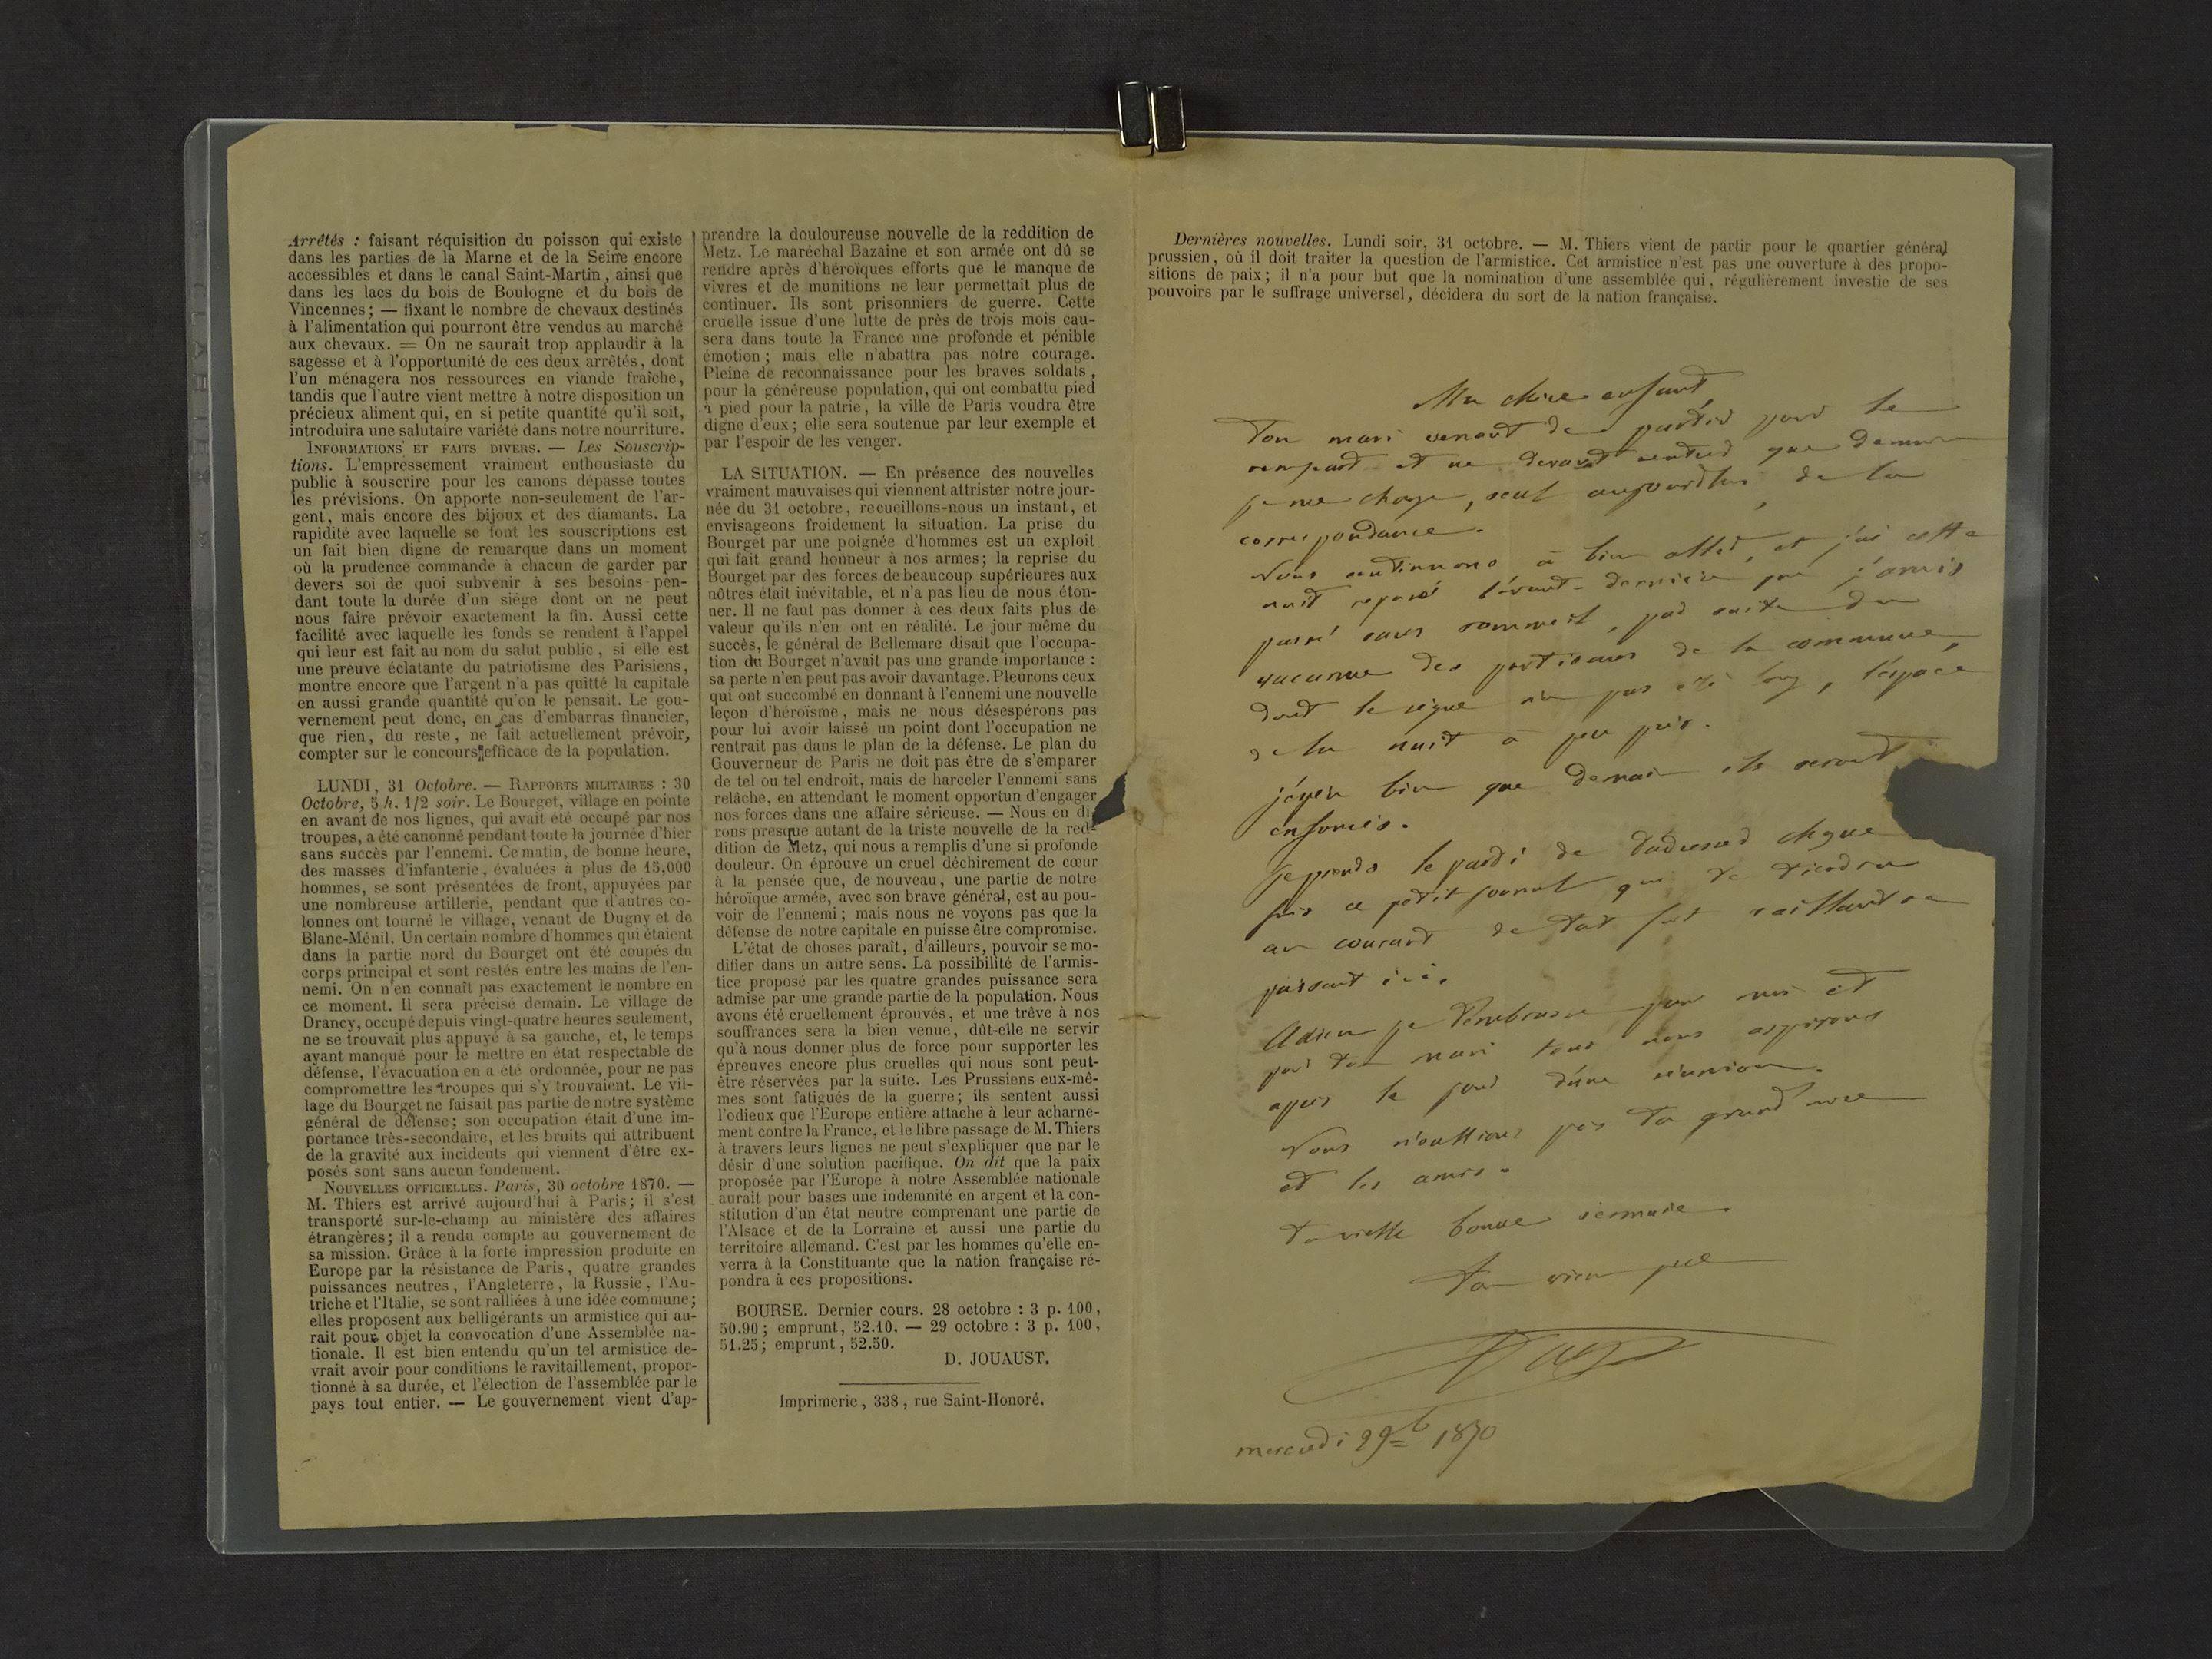 Arrêtés : faisant réquisition du poisson qui existe
dans les parties de la Marne et de la Seine encore
accessibles et dans le canal Saint-Martin, ainsi que
dans les lacs du bois de Boulogne et du bois de
Vincennes; — fixant le nombre de chevaux destinés
à l'alimentation qui pourront être vendus au marché
aux chevaux. = On ne saurait trop applaudir à la
sagesse et à l'opportunité de ces deux arrêtés, dont
l'un ménagera nos ressources en viande fraîche,
tandis que l'autre vient mettre à notre disposition un
précieux aliment qui, en si petite quantité qu'il soit,
introduira une salutaire variété dans notre nourriture.
INFORMATIONS ET FAITS DIVERS. — Les Souscrip-
tions. L'empressement vraiment enthousiaste du
public à souscrire pour les canons dépasse toutes
les prévisions. On apporte non-seulement de l'ar-
gent, mais encore des bijoux et des diamants. La
rapidité avec laquelle se font les souscriptions est
un fait bien digne de remarque dans un moment
où la prudence commande à chacun de garder par
devers soi de quoi subvenir à ses besoins pen-
dant toute la durée d'un siége dont on ne peut
nous faire prévoir exactement la fin. Aussi cette
facilité avec laquelle les fonds se rendent à l'appel
qui leur est fait au nom du salut public, si elle est
une preuve éclatante du patriotisme des Parisiens,
montre encore que l'argent n'a pas quitté la capitale
en aussi grande quantité qu'on le pensait. Le gou-
vernement peut donc, en cas d'embarras financier,
que rien, du reste, ne fait actuellement prévoir,
compter sur le concours efficace de la population.
LUNDI, 31 Octobre. — RAPPORTS MILITAIRES : 30
Octobre, 5 h. 1/2 soir. Le Bourget, village en pointe
en avant de nos lignes, qui avait été occupé par nos
troupes, a été canonné pendant toute la journée d'hier
sans succès par l'ennemi. Ce matin, de bonne heure,
des masses d'infanterie, évaluées à plus de 15,000
hommes, se sont présentées de front, appuyées par
une nombreuse artillerie, pendant que d'autres co-
lonnes ont tourné le village, venant de Dugny et de
Blanc-Ménil. Un certain nombre d'hommes qui étaient
dans la partie nord du Bourget ont été coupés du
corps principal et sont restés entre les mains de l'en-
nemi. On n'en connaît pas exactement le nombre en
ce moment. Il sera précisé demain. Le village de
Drancy, occupé depuis vingt-quatre heures seulement,
ne se trouvait plus appuyé à sa gauche, et, le temps
ayant manqué pour le mettre en état respectable de
défense, l'évacuation en a été ordonnée, pour ne pas
compromettre les troupes qui s'y trouvaient. Le vil-
lage du Bourget ne faisait pas partie de notre système
général de défense; son occupation était d'une im-
portance très-secondaire, et les bruits qui attribuent
de la gravité aux incidents qui viennent d'être ex-
posés sont sans aucun fondement.
NOUVELLES OFFICIELLES. Paris, 30 octobre 1870. —
M. Thiers est arrivé aujourd'hui à Paris; il s'est
transporté sur-le-champ au ministère des affaires
étrangères; il a rendu compte au gouvernement de
sa mission. Grâce à la forte impression produite en
Europe par la résistance de Paris, quatre grandes
puissances neutres, l'Angleterre, la Russie, l'Au-
triche et l'Italie, se sont ralliées à une idée commune;
elles proposent aux belligérants un armistice qui au-
rait pour objet la convocation d'une Assemblée na-
tionale. Il est bien entendu qu'un tel armistice de-
vrait avoir pour conditions le ravitaillement, propor-
tionné à sa durée, et l'élection de l'assemblée par le
pays tout entier. — Le gouvernement vient d'ap-
prendre la douloureuse nouvelle de la reddition de
Metz. Le maréchal Bazaine et son armée ont dû se
rendre après d'héroïques efforts que le manque de
vivres et de munitions ne leur permettait plus de
continuer. Ils sont prisonniers de guerre. Cette
cruelle issue d'une lutte de près de trois mois cau-
sera dans toute la France une profonde et pénible
émotion; mais elle n'abattra pas notre courage.
Pleine de reconnaissance pour les braves soldats,
pour la généreuse population, qui ont combattu pied
à pied pour la patrie, la ville de Paris voudra être
digne d'eux; elle sera soutenue par leur exemple et
par l'espoir de les venger.
LA SITUATION. — En présence des nouvelles
vraiment mauvaises qui viennent attrister notre jour-
née du 31 octobre, recueillons-nous un instant, et
envisageons froidement la situation. La prise du
Bourget par une poignée d'hommes est un exploit
qui fait grand honneur à nos armes; la reprise du
Bourget par des forces de beaucoup supérieures aux
nôtres était inévitable, et n'a pas lieu de nous éton-
ner. Il ne faut pas donner à ces deux faits plus de
valeur qu'ils n'en ont en réalité. Le jour même du
succès, le général de Bellemare disait que l'occupa-
tion du Bourget n'avait pas une grande importance :
sa perte n'en peut pas avoir davantage. Pleurons ceux
qui ont succombé en donnant à l'ennemi une nouvelle
leçon d'héroïsme, mais ne nous désespérons pas
pour lui avoir laissé un point dont l'occupation ne
rentrait pas dans le plan de la défense. Le plan du
Gouverneur de Paris ne doit pas être de s'emparer
de tel ou tel endroit, mais de harceler l'ennemi sans
relâche, en attendant le moment opportun d'engager
nos forces dans une affaire sérieuse. — Nous en di-
rons presque autant de la triste nouvelle de la red-
dition de Metz, qui nous a remplis d'une si profonde
douleur. On éprouve un cruel déchirement de cœur
à la pensée que, de nouveau, une partie de notre
héroïque armée, avec son brave général, est au pou-
voir de l'ennemi; mais nous ne voyons pas que la
défense de notre capitale en puisse être compromise.
L'état de choses paraît, d'ailleurs, pouvoir se mo-
difier dans un autre sens. La possibilité de l'armis-
tice proposé par les quatre grandes puissance sera
admise par une grande partie de la population. Nous
avons été cruellement éprouvés, et une trêve à nos
souffrances sera la bien venue, dût-elle ne servir
qu'à nous donner plus de force pour supporter les
épreuves encore plus cruelles qui nous sont peut-
être réservées par la suite. Les Prussiens eux-mê-
mes sont fatigués de la guerre; ils sentent aussi
l'odieux que l'Europe entière attache à leur acharne-
ment contre la France, et le libre passage de M. Thiers
à travers leurs lignes ne peut s'expliquer que par le
désir d'une solution pacifique. On dit que la paix
proposée par l'Europe à notre Assemblée nationale
aurait pour bases une indemnité en argent et la con-
stitution d'un état neutre comprenant une partie de
l'Alsace et de la Lorraine et aussi une partie du
territoire allemand. C'est par les hommes qu'elle en-
verra à la Constituante que la nation française ré-
pondra à ces propositions.
BOURSE. Dernier cours. 28 octobre : 3 p. 100,
50.90; emprunt, 52.10. — 29 octobre : 3 p. 100,
51.25; emprunt, 52.50.
D. JOUAUST.
Imprimerie, 338, rue Saint-Honoré.
Dernières nouvelles. Lundi soir, 31 octobre. — M. Thiers vient de partir pour le quartier général
prussien, où il doit traiter la question de l'armistice. Cet armistice n'est pas une ouverture à des propo-
sitions de paix; il n'a pour but que la nomination d'une assemblée qui, régulièrement investie de ses
pouvoirs par le suffrage universel, décidera du sort de la nation française.
Ma chère enfant,
Ton mari venant de partir pour le
rempart et ne devant rentrer que demain
je me charge, seul aujourd'hui, de la
correspondance.
Nous continuons à bien aller, et j'ai cette
nuit reposé l'avant-dernière que j'avais
passé sans sommeil, par suite du
vacarme des partisans de la commune,
dont le règne n'a pas été long, l'espace
de la nuit à peu près.
j'espère bien que demain ils seront
enfoncés.
Je prends le parti de t'adresser chaque
fois ce petit journal qui te tiendra
au courant de tout fait saillant se
passant ici.
Adieu je t'embrasse pour moi et
pour ton mari tous nous aspirons
après le jour d'une réunion.
Nous n'oublions pas ta grand'mère
et les amis.
ta vieille bonne
Ton vieux père
mercredi 2 9b 1870